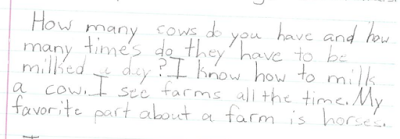 How many cows do you have and how
many times do they have to be
milked a day? I know how to milk
a cow. I see farms all the time. My
favorite part about a farm is horses.